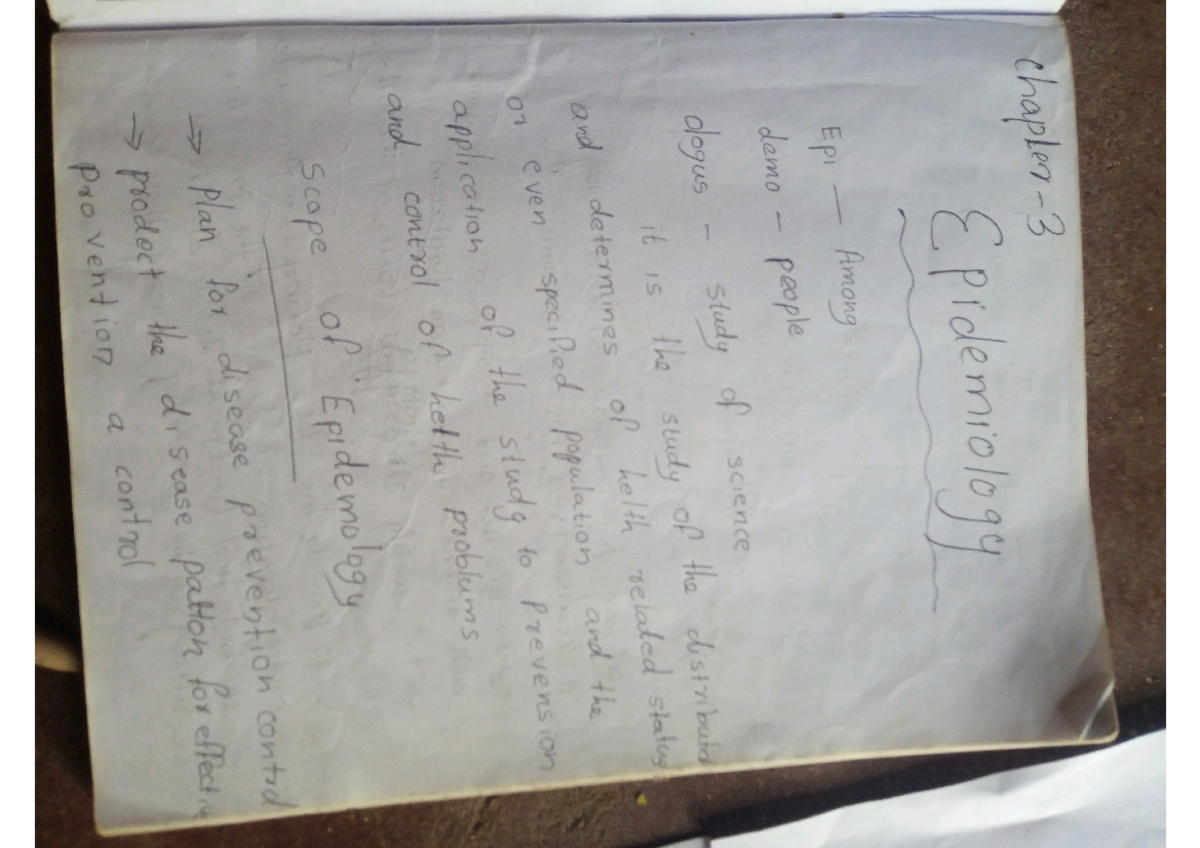 chapter-3
Epidemiology
Epi — Among
demo - people
ologus - study of science
it is the study of the distribution
and determines of helth related status
or even specified population and the
application of the study to prevension
and control of helth problums
Scope of Epidemology
→ plan for disease prevention control
→ prodect the disease patton for effectiv
provention a control